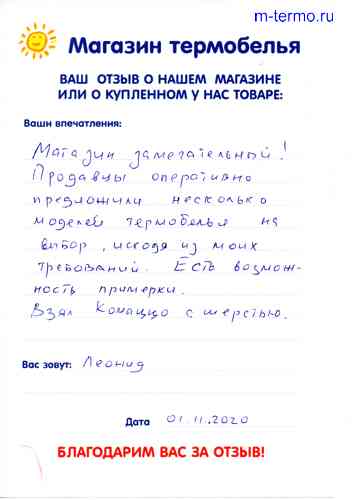 m-termo.ru
Магазин термобелья
ВАШ ОТЗЫВ О НАШЕМ МАГАЗИНЕ
ИЛИ О КУПЛЕННОМ У НАС ТОВАРЕ:
Ваши впечатления:
Магазин замечательный!
Продавцы оперативно
предложили несколько
моделей термобелья на
выбор, исходя из моих
требований. Есть возмож-
ность примерки.
Взял Комаццо с шерстью.
Вас зовут: Леонид
Дата 01.11.2020
БЛАГОДАРИМ ВАС ЗА ОТЗЫВ!